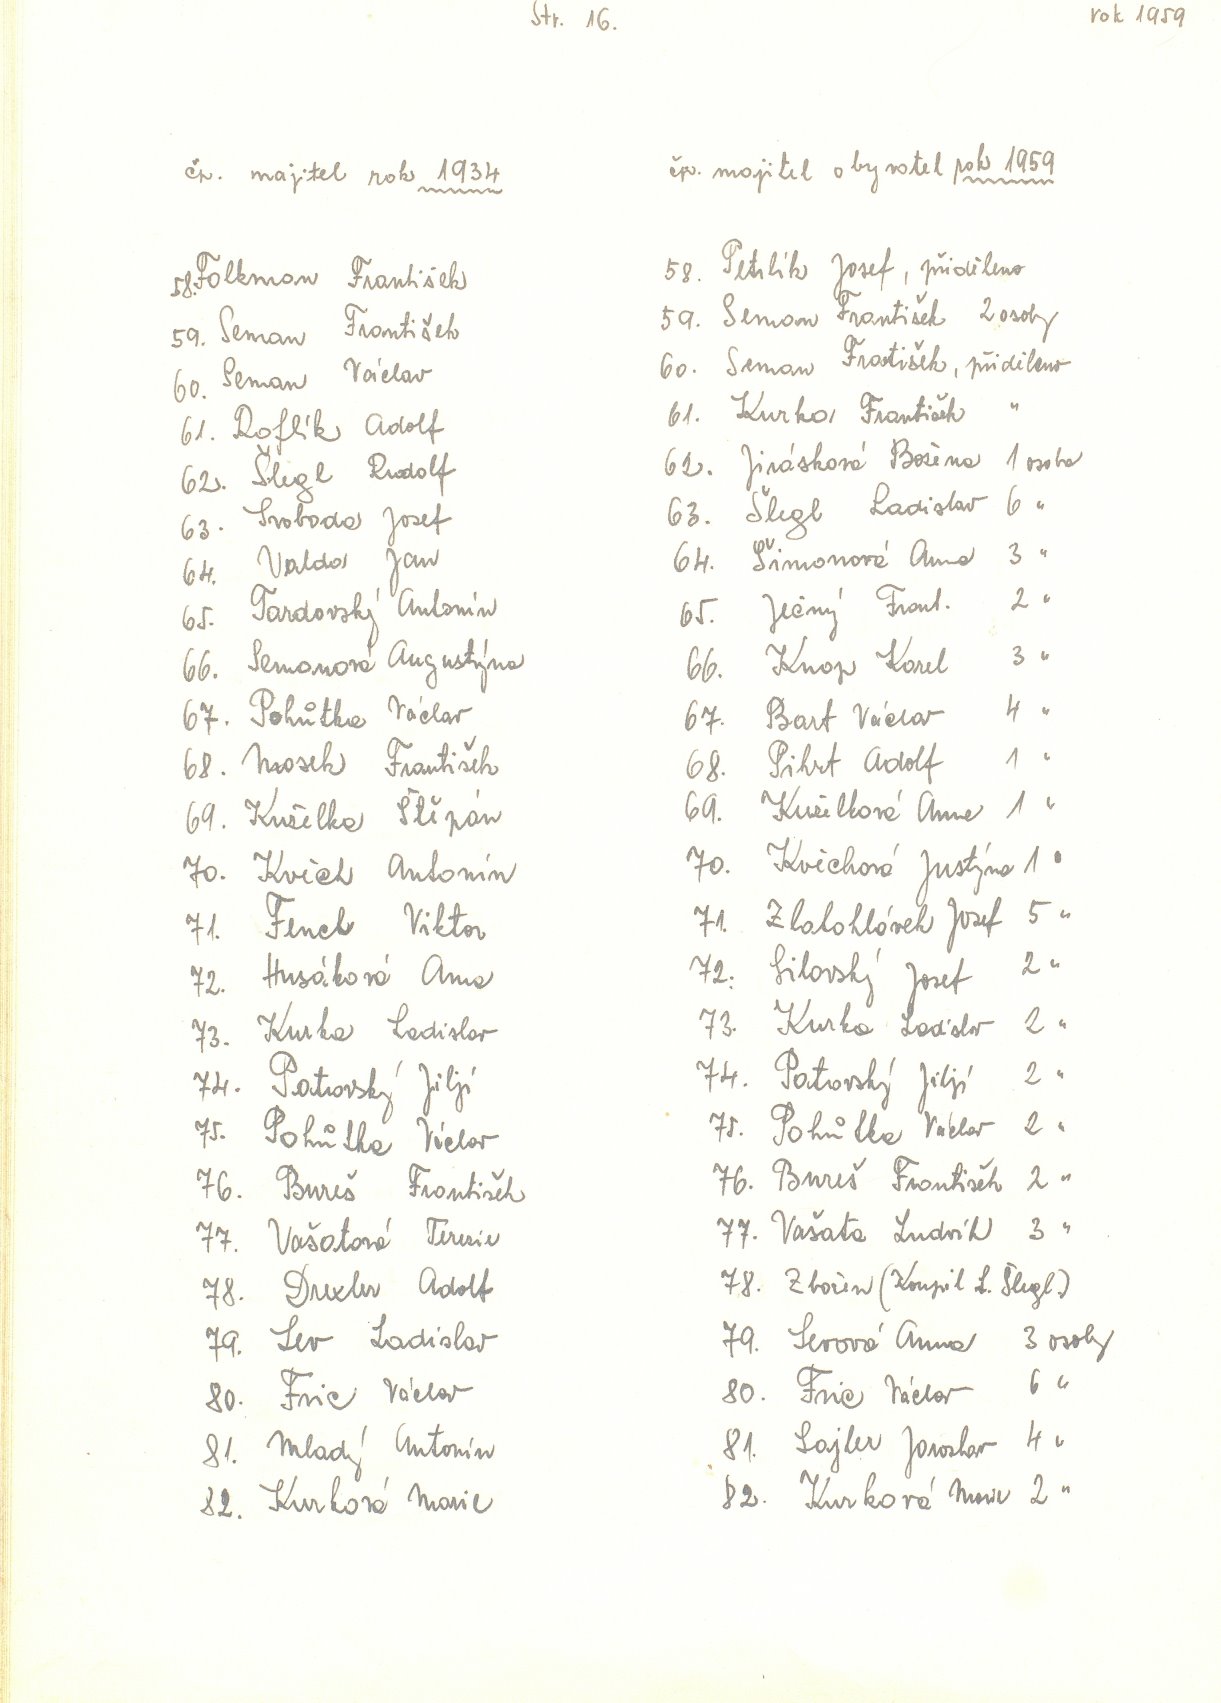 Str. 16.
rok 1959
čp. majitel rok 1934
čp. majitel obyvatel rok 1959
58. Folkman František
58. Petrlík Josef, přiděleno
59. Seman František
59. Seman František 2 osoby
60. Seman Václav
60. Seman František, přiděleno
61. Roflík Adolf
61. Kurka František "
62. Šlegl Rudolf
62. Jirásková Božena 1 osoba
63. Svoboda Josef
63. Šlegl Ladislav 6 "
64. Valda Jan
64. Šimonová Anna 3 "
65. Tardovský Antonín
65. Ječný Frant. 2 "
66. Semanová Augustýna
66. Knop Karel 3 "
67. Pohůtka Václav
67. Bart Václav 4 "
68. Mrosek František
68. Pihrt Adolf 1 "
69. Kuželka Štěpán
69. Kuželková Anna 1 "
70. Kvěch Antonín
70. Kvěchová Justýna 1 "
71. Fencl Viktor
71. Zlatohlávek Josef 5 "
72. Husáková Anna
72. Silovský Josef 2 "
73. Kurka Ladislav
73. Kurka Ladislav 2 "
74. Patrovský Jiljí
74. Patrovský Jiljí 2 "
75. Pohůtka Václav
75. Pohůtka Václav 2 "
76. Bureš František
76. Bureš František 2 "
77. Vašatová Terezie
77. Vašata Ludvík 3 "
78. Drexler Adolf
78. Zbořen (Koupil L. Šlegl.)
79. Ser Ladislav
79. Serová Anna 3 osoby
80. Fric Václav
80. Fric Václav 6 "
81. Mladý Antonín
81. Sajler Jaroslav 4 "
82. Kurková Marie
82. Kurková Marie 2 "